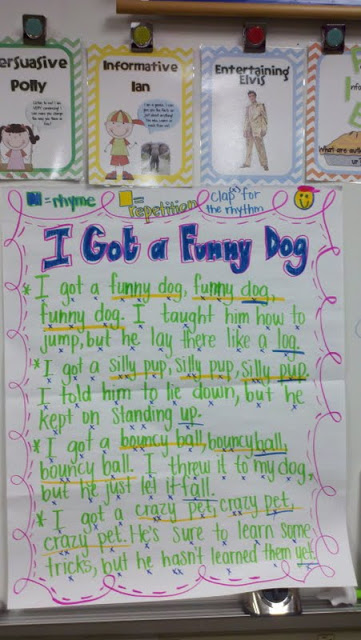 Persuasive
Polly
Informative
Ian
Entertaining
Elvis
=rhyme
=repetition
clap for
the rhythm
I Got a Funny Dog
* I got a funny dog, funny dog,
funny dog. I taught him how to
jump, but he lay there like a log.
* I got a silly pup, silly pup, silly pup.
I told him to lie down, but he
kept on standing up.
* I got a bouncy ball, bouncy ball,
bouncy ball. I threw it to my dog,
but he just let it fall.
* I got a crazy pet, crazy pet,
crazy pet. He's sure to learn some
tricks, but he hasn't learned them yet.